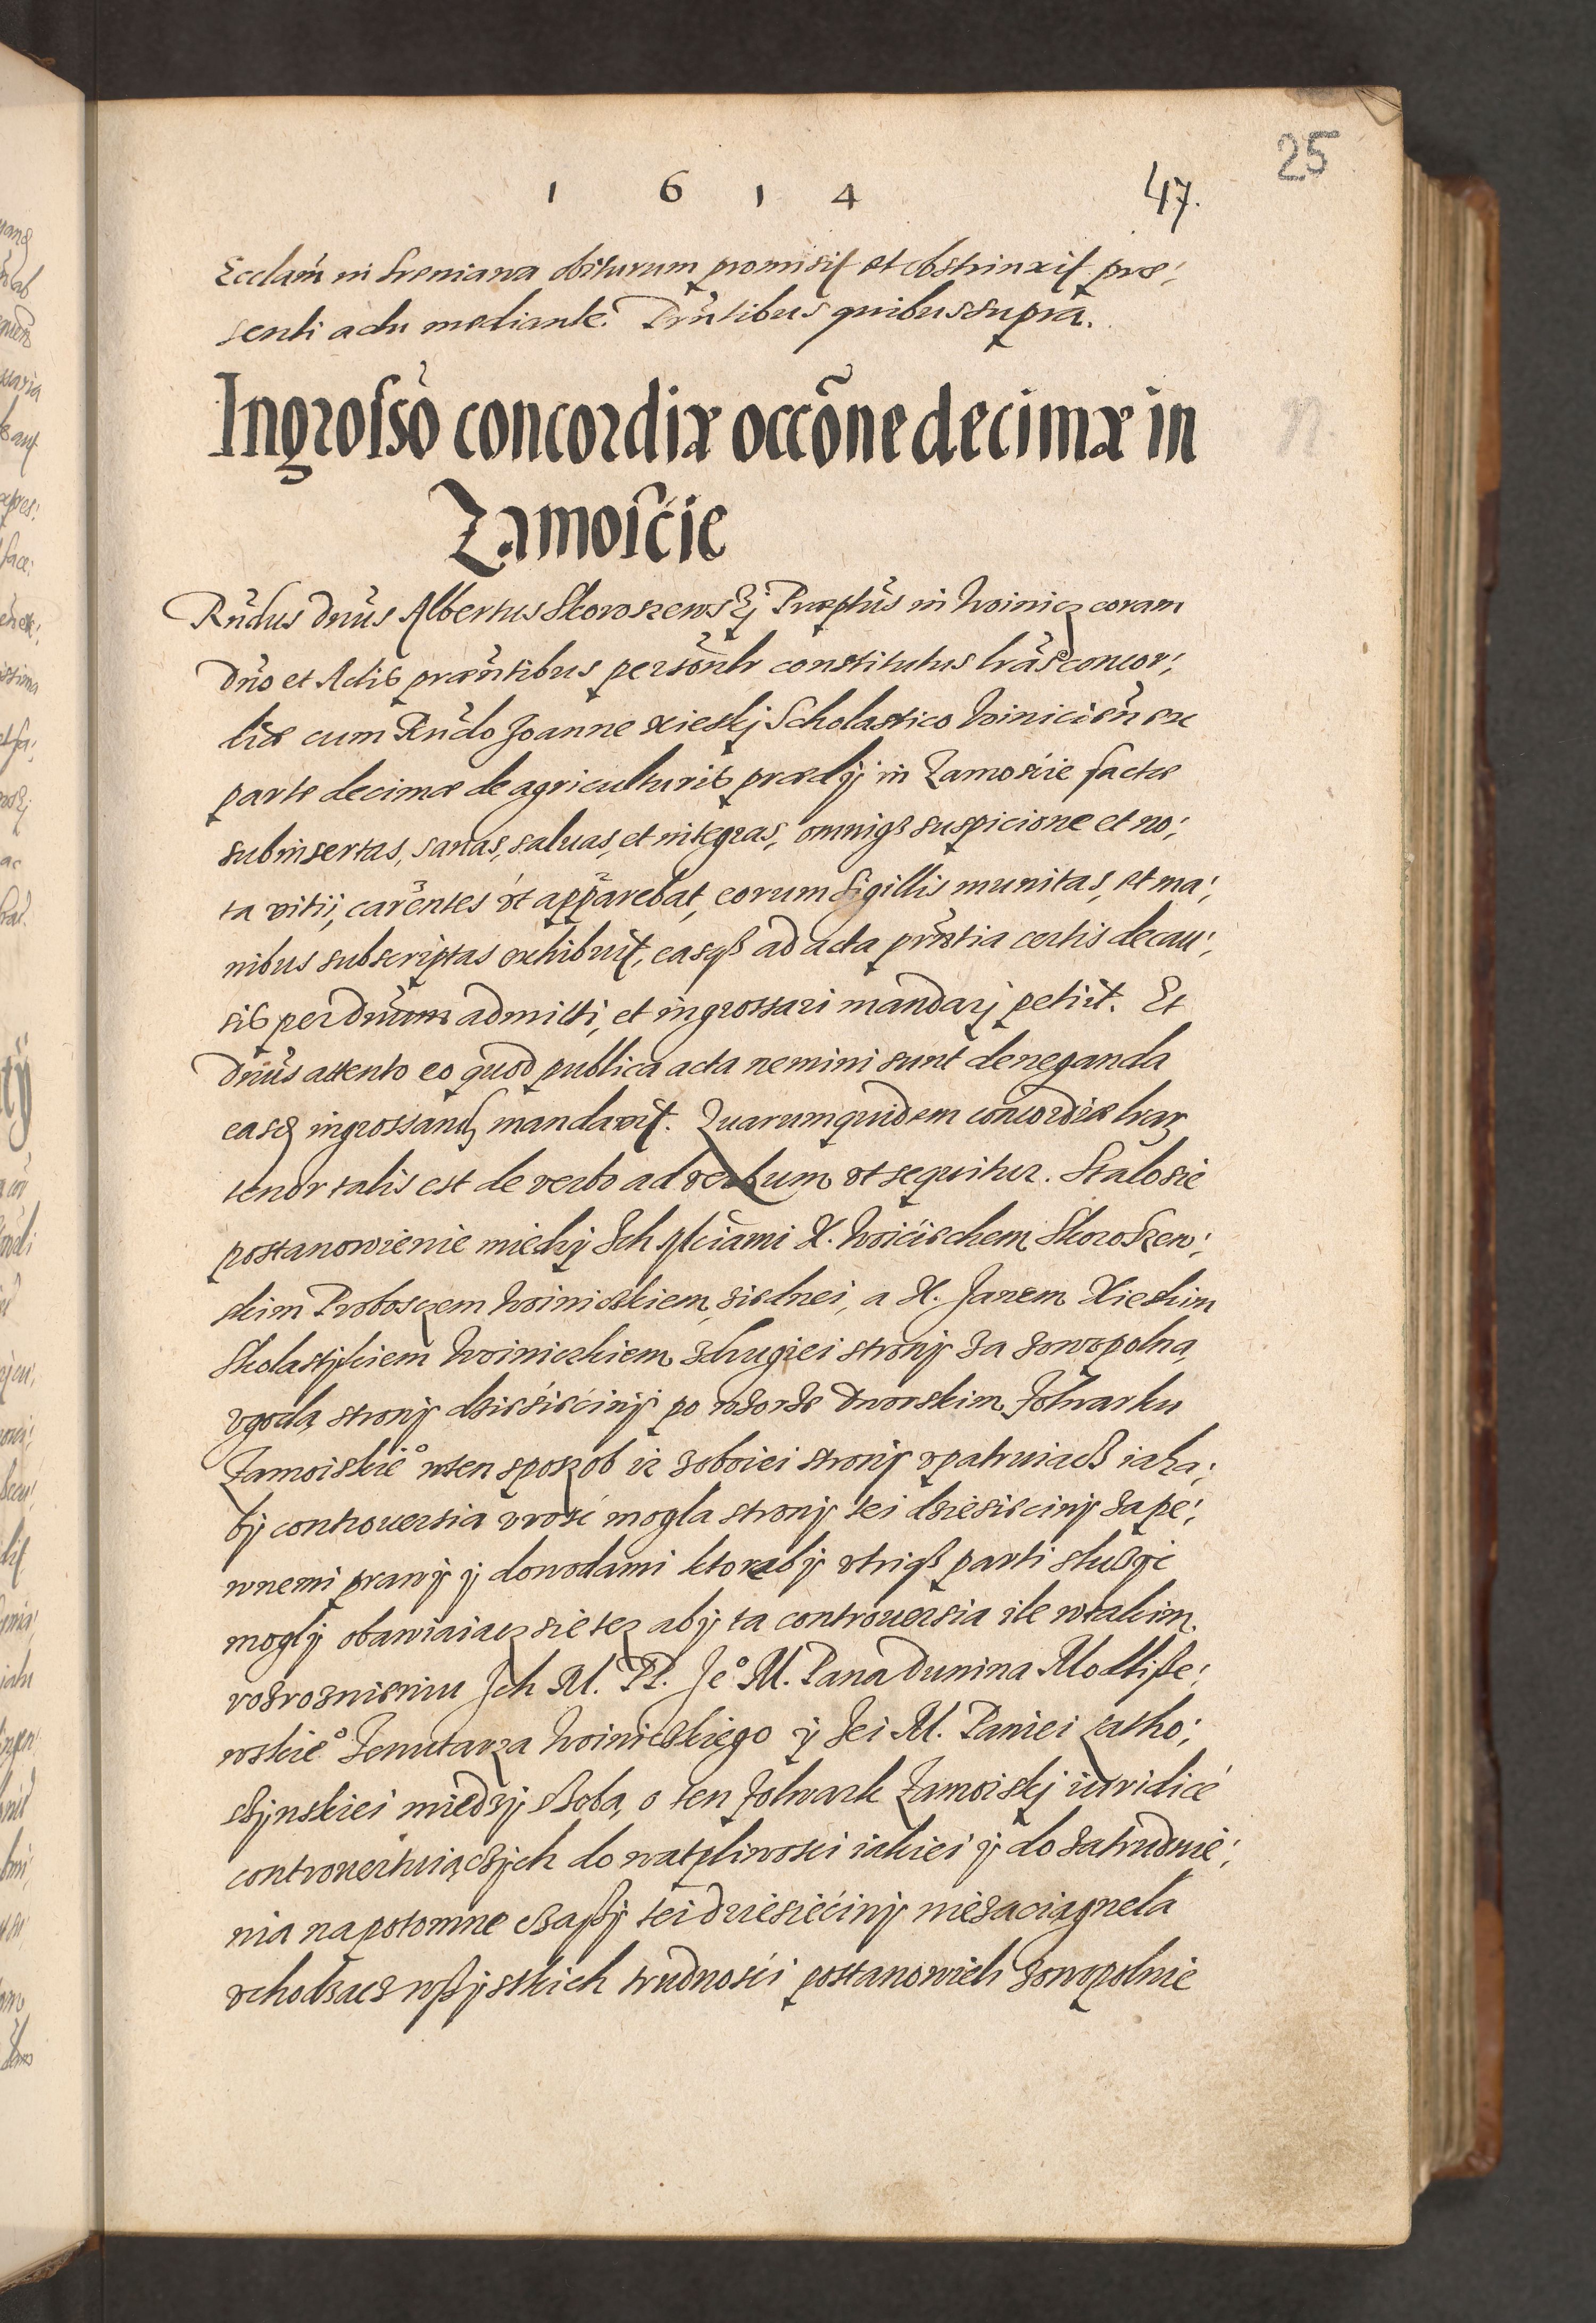 25
1 6 1 4 47.
Ecclam in Sreniawa obiturum promisit et obstrinxit præ:
senti actu mediante. Prntibus quibus supra.
Ingrosso concordiæ occone decimæ in
Zamoscie
Rndus dnus Albertus Skoroszewskj Præptus in Woinicz coram
dno et Actis præntibus personlr constitutus lras concor:
diæ cum Rndo Joanne Xieskj Scholastico Woinicien ex
parte decimæ de agriculturis prædij in Zamoście factæ
subinsertas, sanas, saluas, et integras, omniqß suspicione et no:
ta vitij, carentes vt apparebat, eorum sigillis munitas, et ma:
nibus subscriptas exhibuit, easqß ad acta prntia certis de cau:
sis per dnum admitti, et ingrossari mandarj petiit. Et
dnus attento eo quod publica acta nemini sunt deneganda
easq ingrossand mandavit. Quarum quidem concordiæ lrar
tenor talis est de verbo ad verbum vt sequitur. Stalo sie
postanowienie miedzy Ich Mciami X. Woićiechem Skoroszew:
skim Proboszczem Woinickiem, ziednei, a X. Janem Xieskim
Skolastykiem Woiniczkiem zdrugiei strony za zowopolna,
vgoda, strony dziesiećiny po wzorze dworskim Folwarku
Zamoiskie° wten sposob iz zoboiei strony vpatruiacz iaka:
by controuersia vrosć mogla strony tei dziesiećiny za pe:
wnemi prawy y dowodami ktoreby vtriqß parti sluzyć
mogly obawiaiacz sie tez aby ta controuersia ile wtakim
rozroznieniu Jch M. PP. Je° M. Pana Dunina Modlisze:
wskie° Tenutarza Woinickiego y Jei M. Paniei
miedzy soba, o ten folwark Zamoiskj iuridicé
controuertuiączych do watpliwosci iakiei y do zatrudnie:
nia napotomne czassy tei dziesiećiny niezaciagnela
vchodzacz wszystkich trudnośći postanowieli zowopolnie